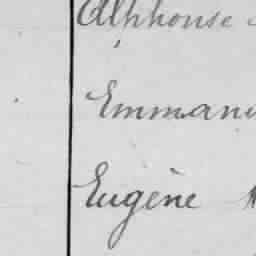 Alphonse
Emmanu
Eugène